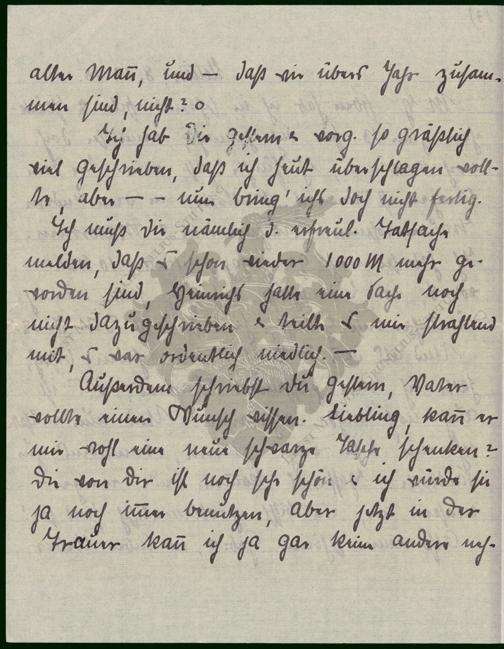 alter Mañ, und – daß wir übers Jahr zusam-
men sind, nicht? o
Ich hab dir gestern & vorg. so gräßlich
viel geschrieben, daß ich heut überschlagen woll-
te, aber – – nun bring' ichs doch nicht fertig.
Ich muß dir nämlich d. erfreul. Tatsache
melden, daß es schon wieder 1000 M mehr ge-
worden sind, Heinrichs hatte eine Sache noch
nicht dazugeschrieben & teilte es mir strahlend
mit, es war ordentlich niedlich. –
Außerdem schriebst du gestern, Vater
wollte einen Wunsch wissen. Liebling, kañ er
mir wohl eine neue schwarze Tasche schenken?
Die von dir ist noch sehr schön & ich würde sie
ja noch im̃er benutzen, aber jetzt in der
Trauer kañ ich ja gar keine andere neh-